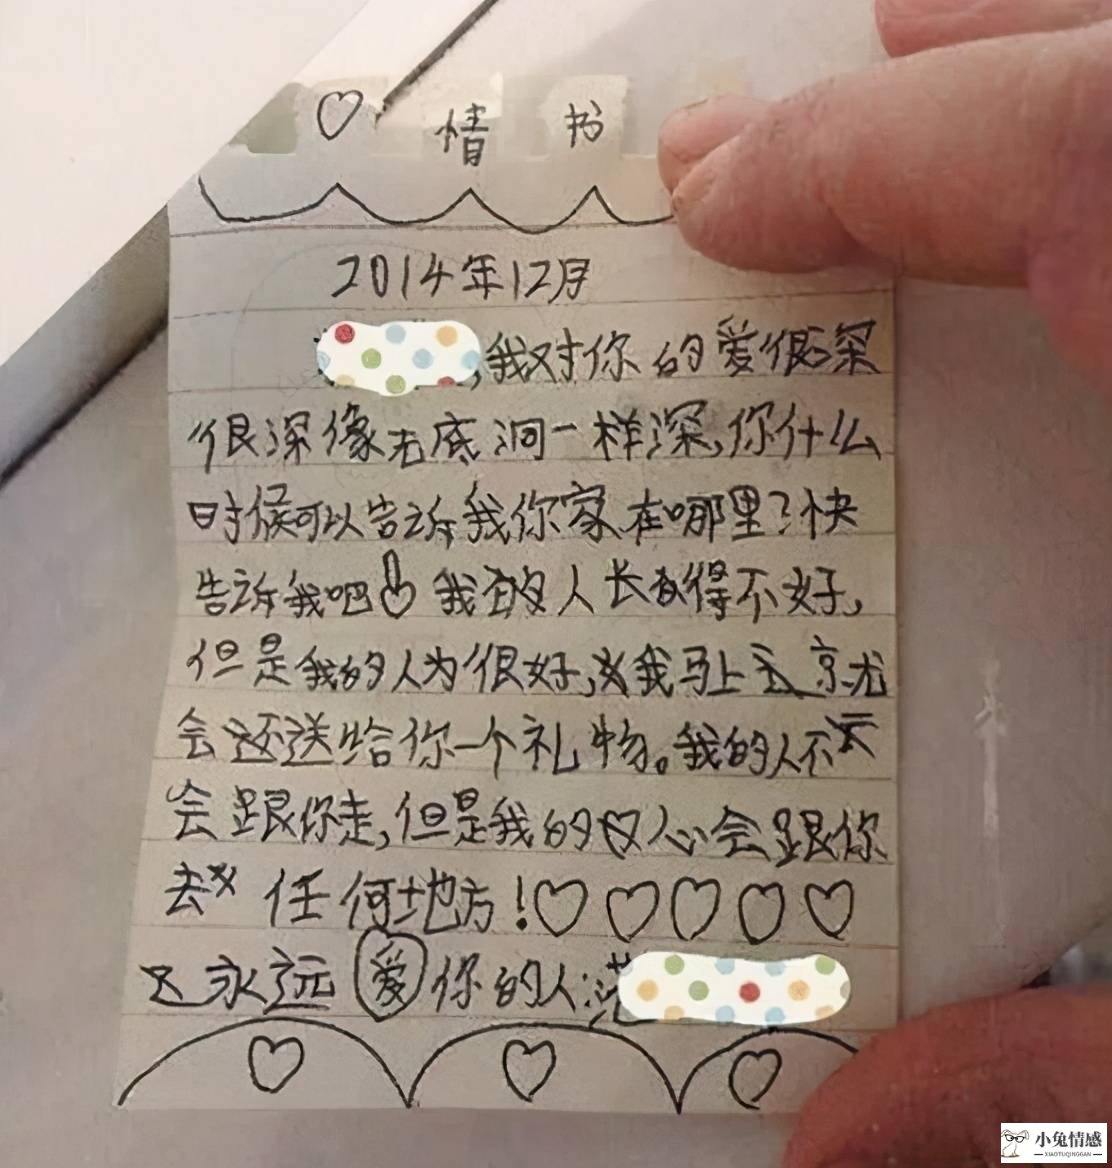 ♡ 情 书
2014年12月
,我对你的爱很深
很深像无底洞一样深,你什么
时候可以告诉我你家在哪里?快
告诉我吧 我的人长得不好,
但是我的人为很好,我马上就
会送给你一个礼物。我的人不
会跟你走,但是我的心会跟你
去任何地方!♡♡♡♡♡
永远爱你的人:范
♡ ♡ ♡
小兔情感
XIAOTUQINGGAN